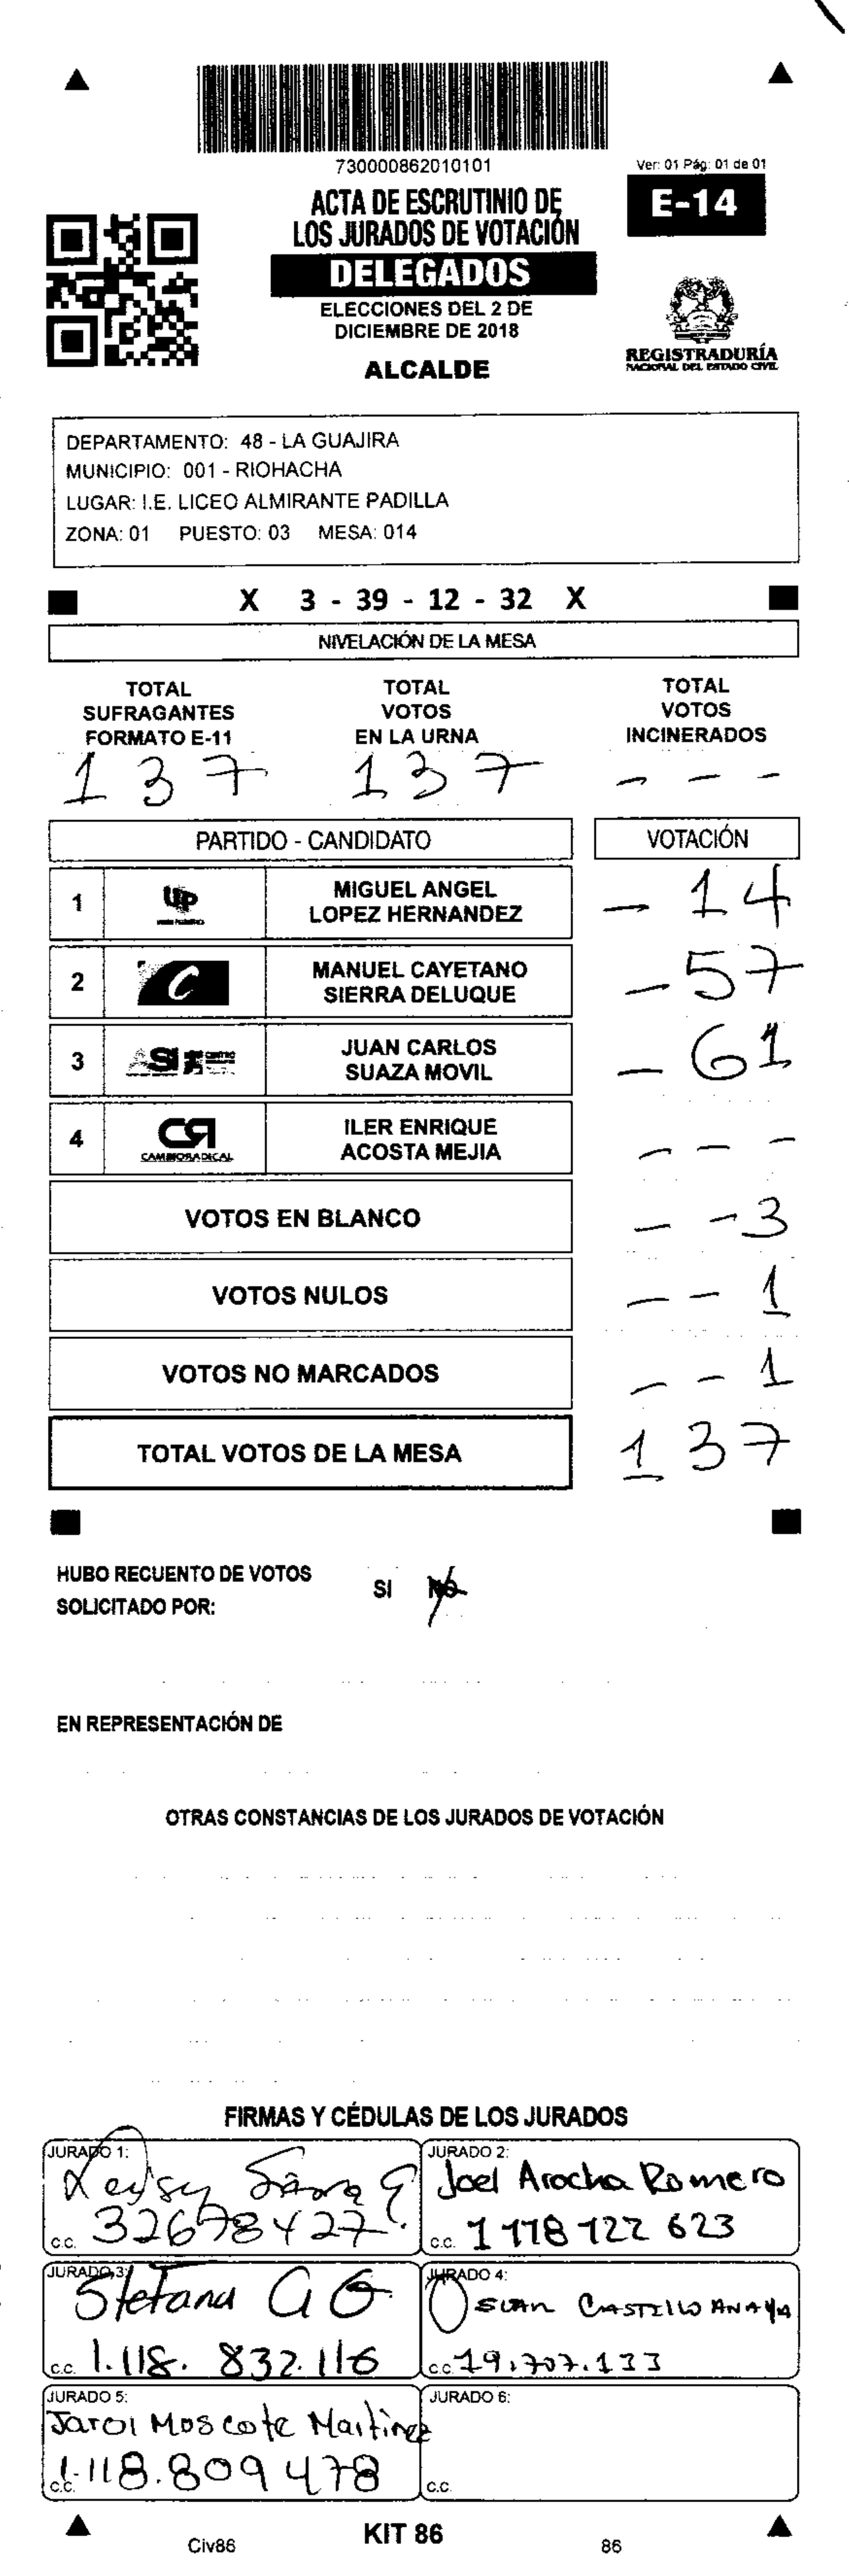 730000862010101
Ver: 01 Pág: 01 de 01
ACTA DE ESCRUTINIO DE
LOS JURADOS DE VOTACIÓN
E-14
DELEGADOS
ELECCIONES DEL 2 DE
DICIEMBRE DE 2018
ALCALDE
REGISTRADURÍA
NACIONAL DEL ESTADO CIVIL
DEPARTAMENTO: 48 - LA GUAJIRA
MUNICIPIO: 001 - RIOHACHA
LUGAR: I.E. LICEO ALMIRANTE PADILLA
ZONA: 01 PUESTO: 03 MESA: 014
X 3 - 39 - 12 - 32 X
NIVELACIÓN DE LA MESA
TOTAL SUFRAGANTES FORMATO E-11
TOTAL VOTOS EN LA URNA
TOTAL VOTOS INCINERADOS
137 137 - - -
PARTIDO - CANDIDATO VOTACIÓN
1 UP MIGUEL ANGEL
LOPEZ HERNANDEZ - 14
2 C MANUEL CAYETANO
SIERRA DELUQUE - 57
3 ASI JUAN CARLOS
SUAZA MOVIL - 61
4 CR CAMBIO RADICAL ILER ENRIQUE
ACOSTA MEJIA - - -
VOTOS EN BLANCO - - 3
VOTOS NULOS - - 1
VOTOS NO MARCADOS - - 1
TOTAL VOTOS DE LA MESA 137
HUBO RECUENTO DE VOTOS SI NO
SOLICITADO POR:
EN REPRESENTACIÓN DE
OTRAS CONSTANCIAS DE LOS JURADOS DE VOTACIÓN
FIRMAS Y CÉDULAS DE LOS JURADOS
JURADO 1:
c.c. 32678427
JURADO 2:
Joel Arocha Romero
c.c. 1118122623
JURADO 3:
Stefana G G
c.c. 1.118.832.116
JURADO 4:
CASTILLO ANAYA
c.c. 19.707.133
JURADO 5:
Jaroi Moscote Martinez
c.c. 1.118.809478
JURADO 6:
c.c.
Civ86
KIT 86
86